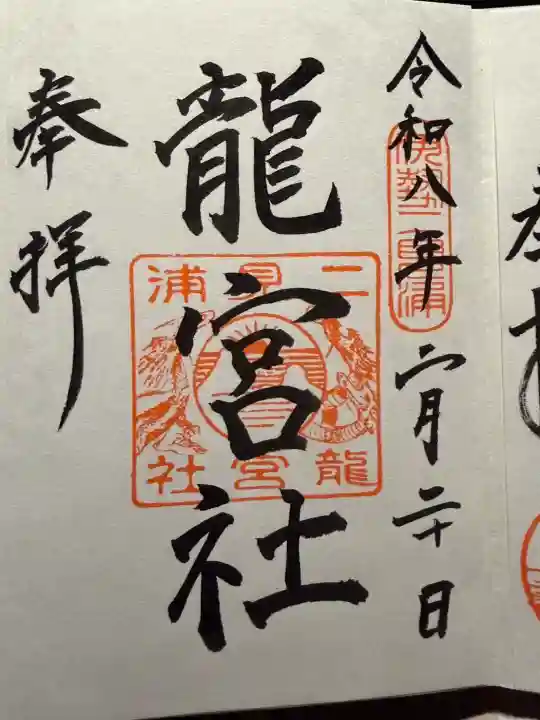 令和八年 六月二十日
伊勢二見浦
龍宮社
二見浦
龍宮社
奉拝